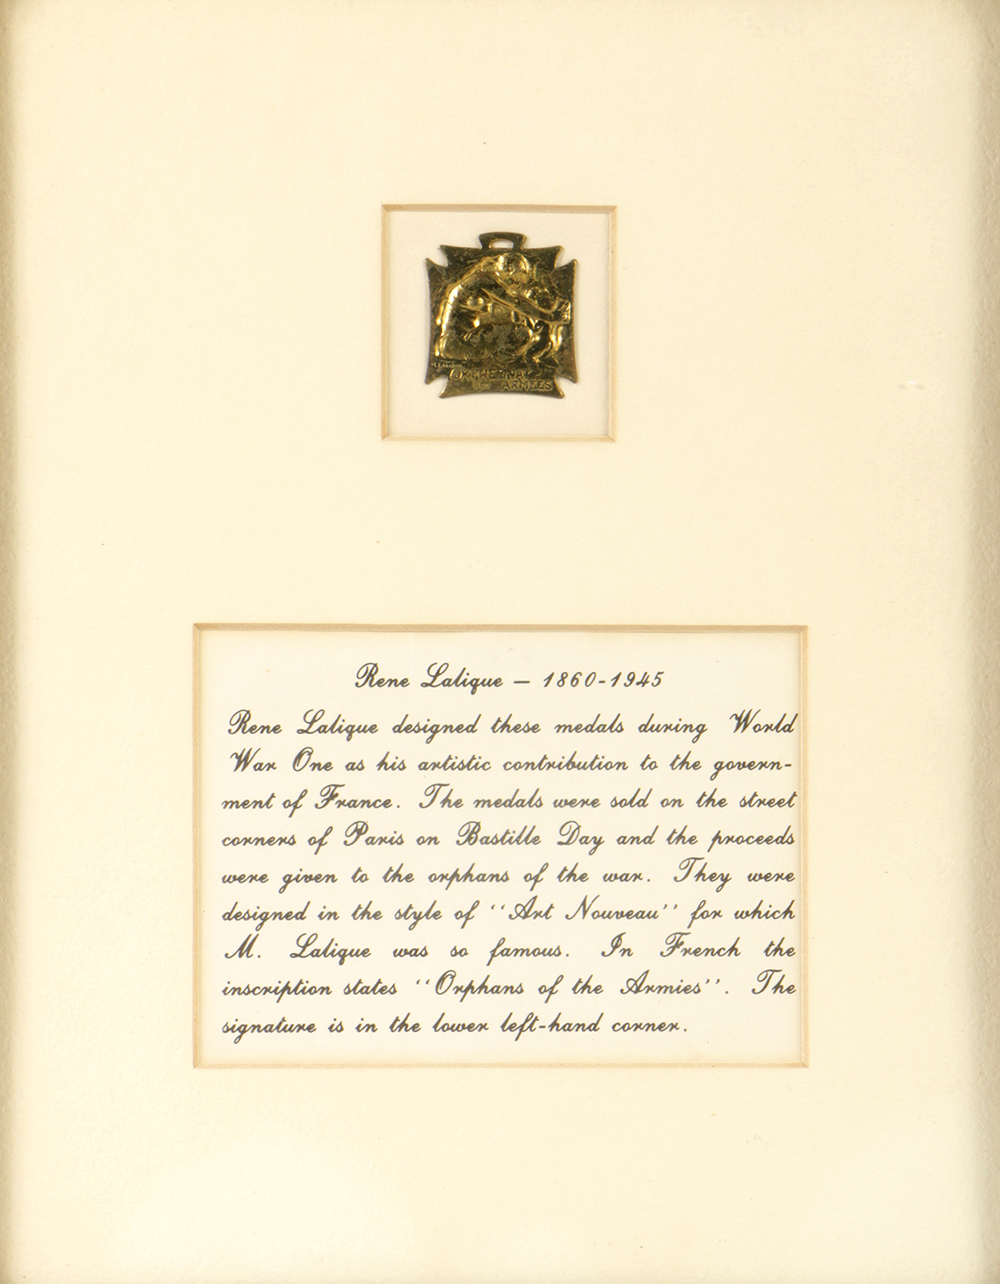 ORPHELINAT
DES ARMÉES
Rene Lalique — 1860-1945
Rene Lalique designed these medals during World
War One as his artistic contribution to the govern-
ment of France. The medals were sold on the street
corners of Paris on Bastille Day and the proceeds
were given to the orphans of the war. They were
designed in the style of ‘‘Art Nouveau’’ for which
M. Lalique was so famous. In French the
inscription states ‘‘Orphans of the Armies’’. The
signature is in the lower left-hand corner.